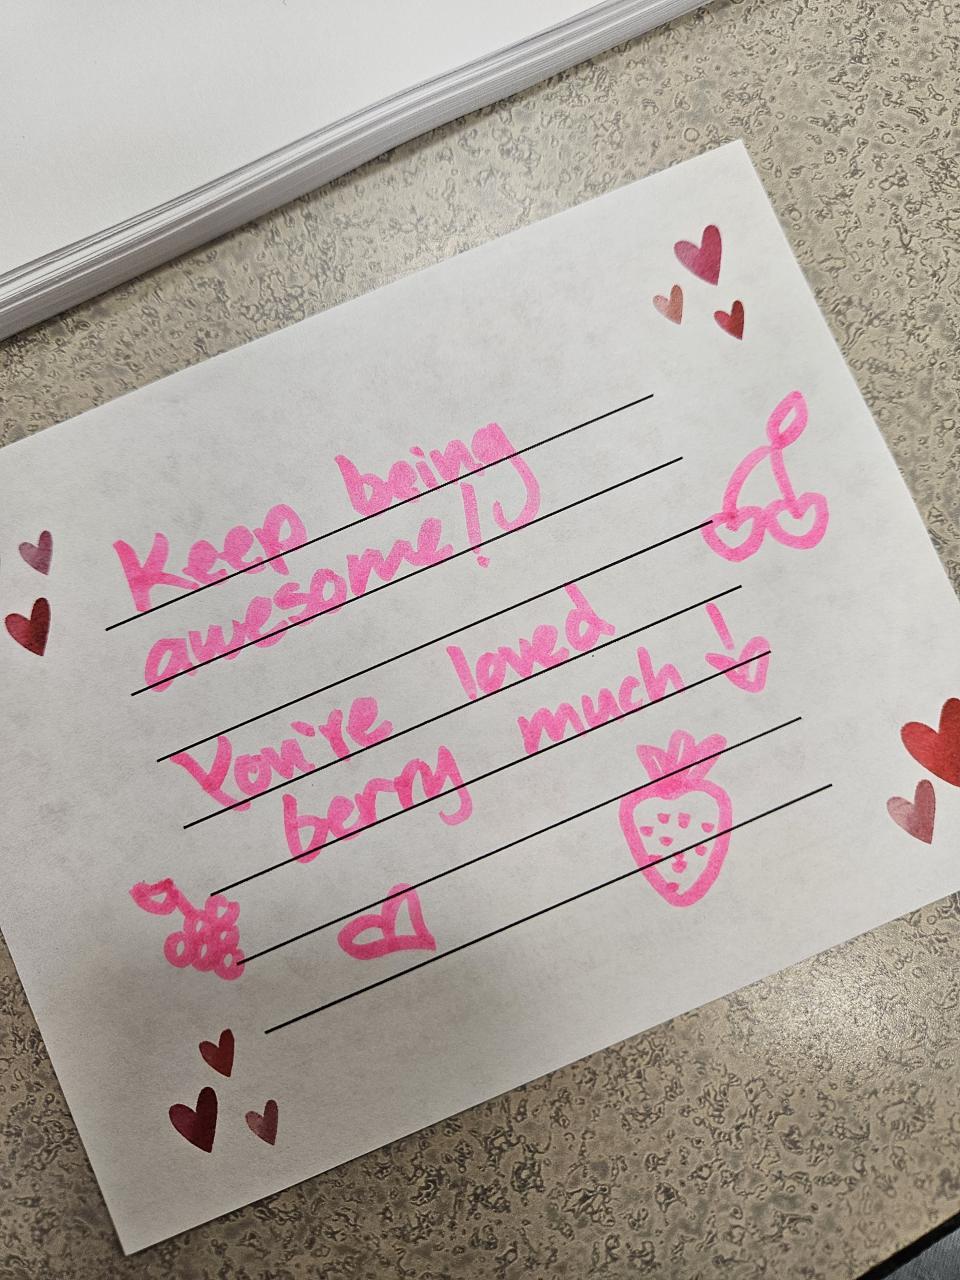 Keep being
awesome!
You're loved
berry much!